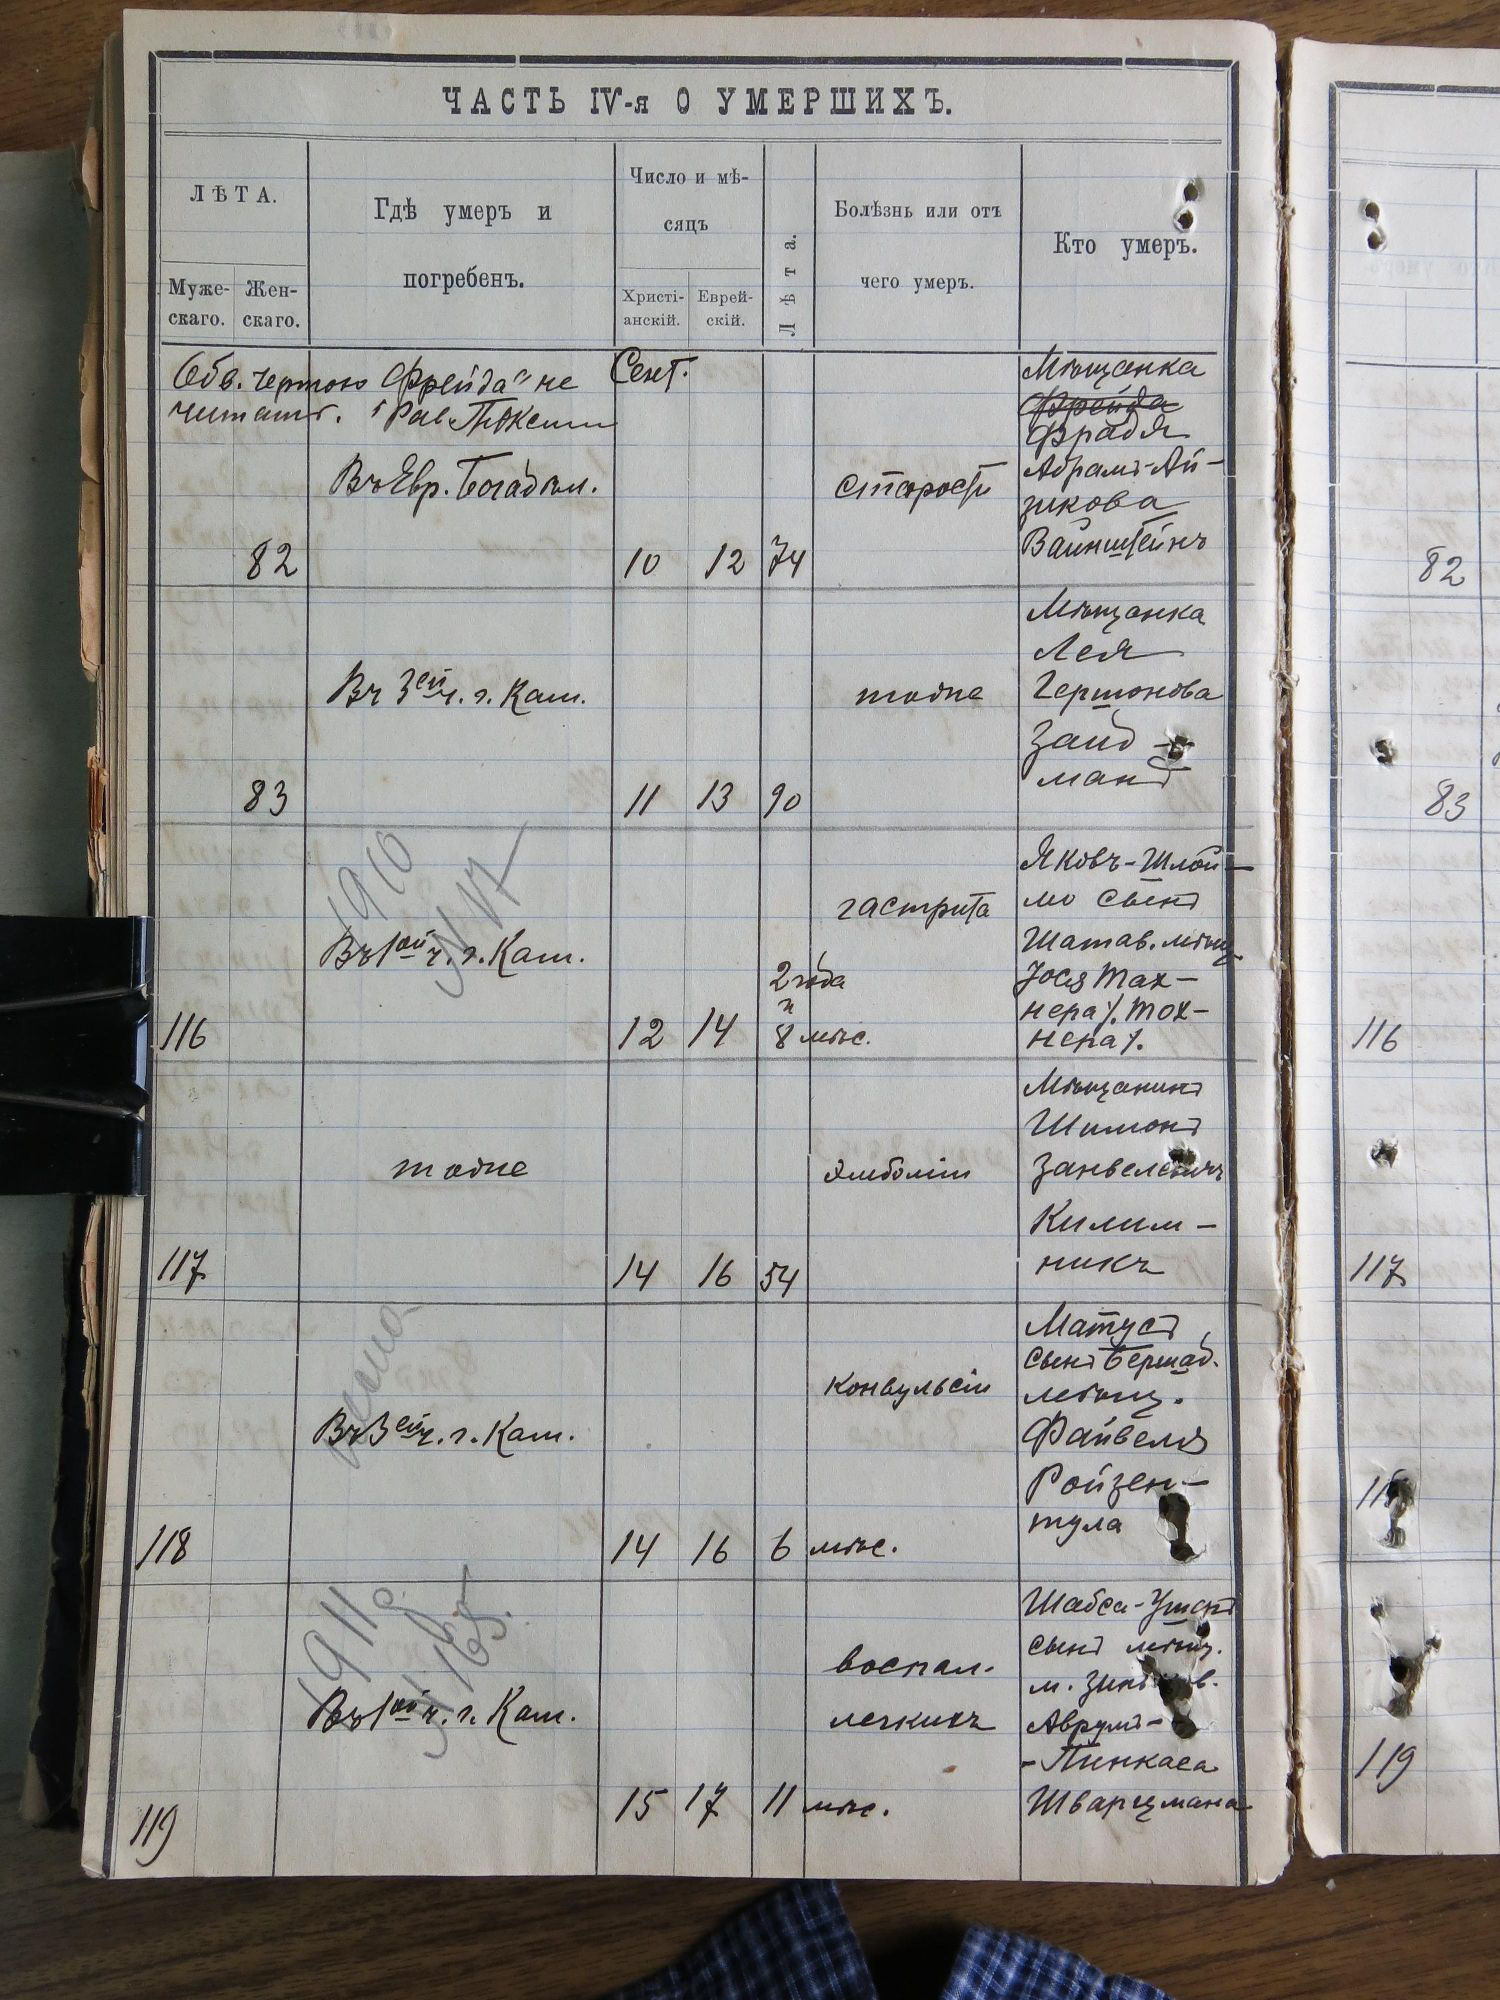 ЧАСТЬ IV-я О УМЕРШИХЪ.
ЛѢТА.
Муже-
скаго.
Жен-
скаго.
Гдѣ умеръ и
погребенъ.
Число и мѣ-
сяцъ
Христі-
анскій.
Еврей-
скій.
Лѣта.
Болѣзнь или отъ
чего умеръ.
Кто умеръ.
Обв. чертою „Фрейда" не
читать. Рав.
Сент.
Въ Евр. Богадѣл.
82
10 12 74
старости
Мѣщанка
Фрейда
Фрадя
Абрамъ-Ай-
зикова
Вайнштейнъ
Въ 3ей ч. г. Кам.
83
11 13 90
тоже
Мѣщанка
Лея
Гершонова
Зайд-
манъ
1910
N 17
Въ 1ой ч. г. Кам.
116
12 14
2 года
и
8 мѣс.
гастрита
Яковъ-Шлой-
мо сынъ
Шатав. мѣщ.
Іося Тах-
нера /. Тох-
нера /.
тоже
117
14 16 54
эмболіи
Мѣщанинъ
Шимонъ
Занвелевичъ
Килим-
никъ
Въ 3ей ч. г. Кам.
118
14 16 6 мѣс.
конвульсіи
Матусъ
сынъ Бершад.
мѣщ.
Файвеля
Ройзен-
тула
1911
N 165.
Въ 1ой ч. г. Кам.
119
15 17 11 мѣс.
воспал.
легкихъ
Шабса-
сынъ мѣщ.
м.
Аврумъ-
-Пинкаса
Шварцмана
82
83
116
117
119